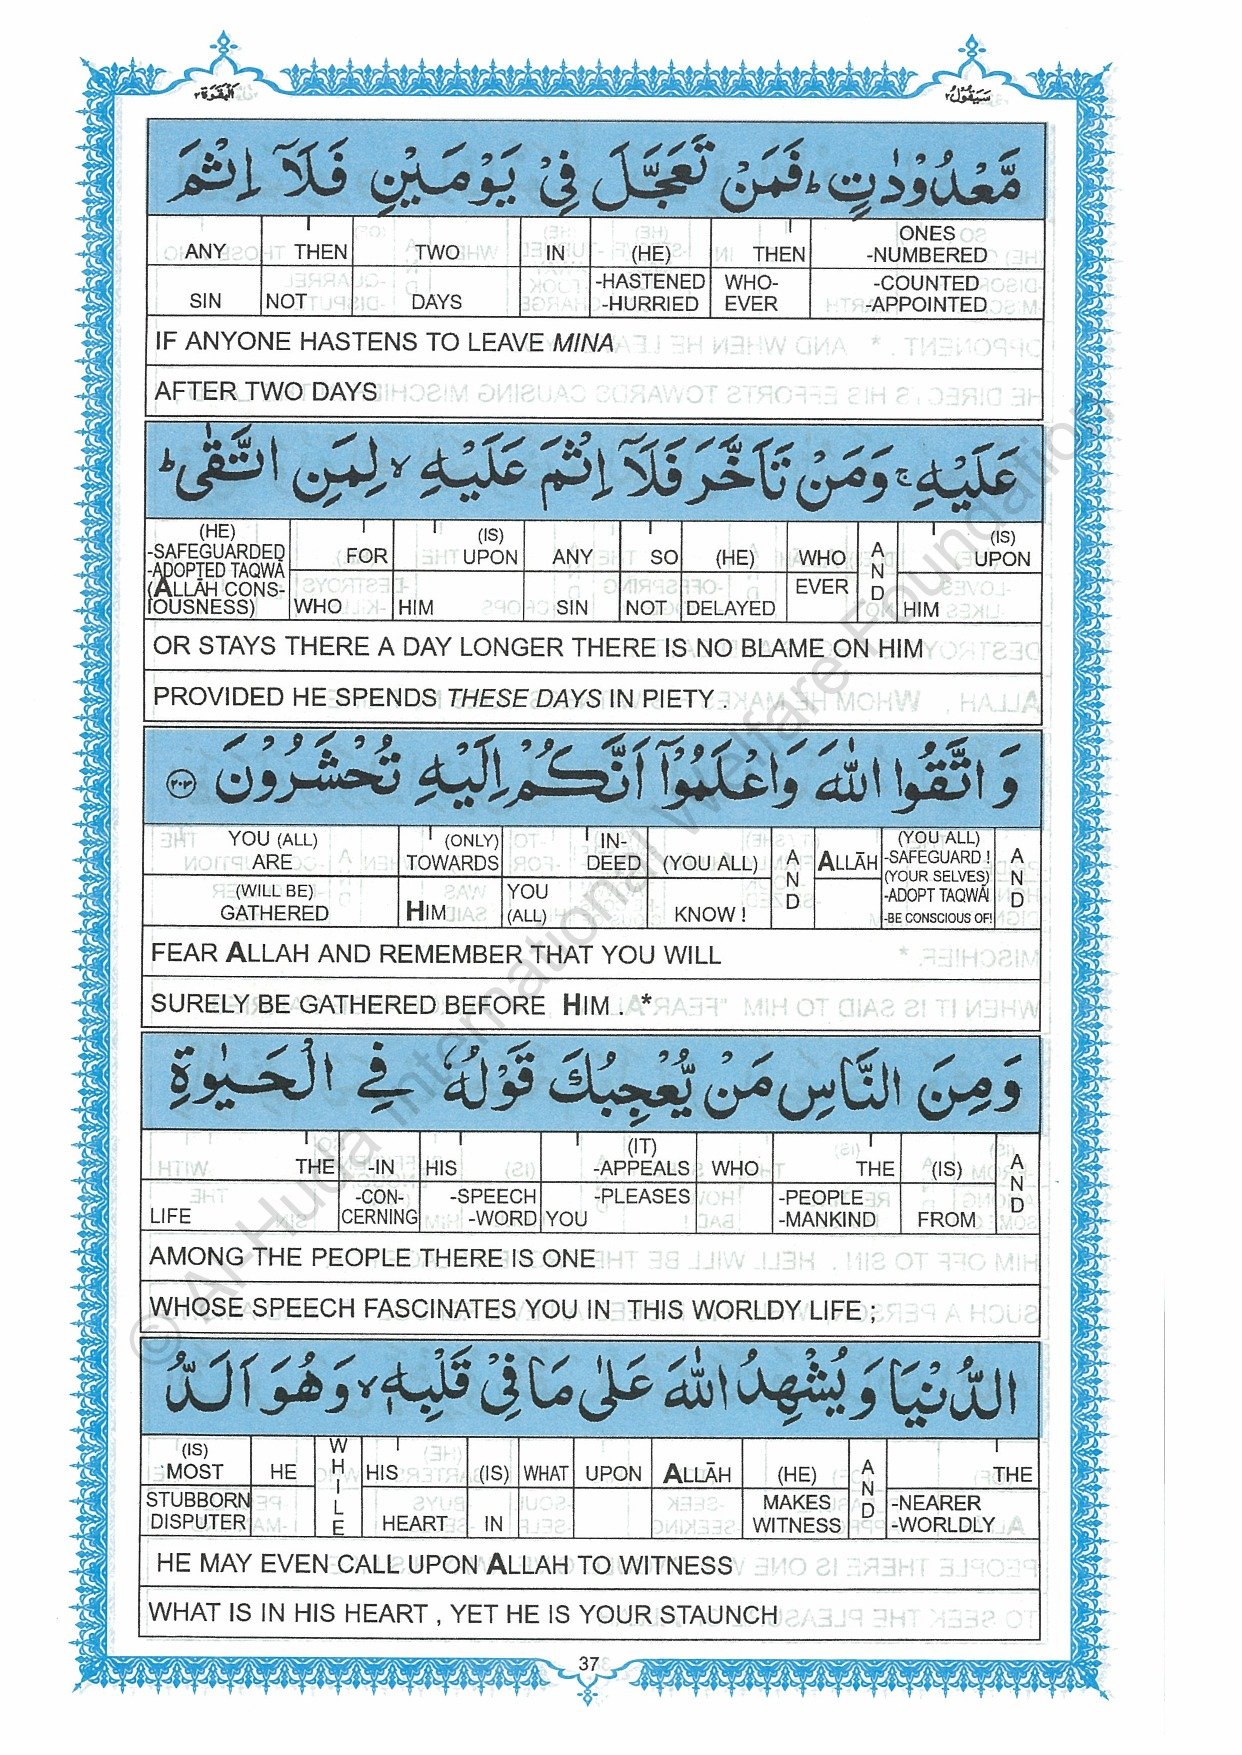 سَيَقُوْلُ ٢
اَلْبَقَرَة ٢
مَّعْدُوْدٰتٍ ؕ فَمَنْ تَعَجَّلَ فِيْ يَوْمَيْنِ فَلَآ اِثْمَ
ANY SIN THEN NOT TWO DAYS IN (HE) -HASTENED -HURRIED THEN WHO- EVER ONES -NUMBERED -COUNTED -APPOINTED
IF ANYONE HASTENS TO LEAVE MINA
AFTER TWO DAYS
عَلَيْهِ ۚ وَمَنْ تَاَخَّرَ فَلَآ اِثْمَ عَلَيْهِ ۙ لِمَنِ اتَّقٰى ؕ
(HE) -SAFEGUARDED -ADOPTED TAQWĀ (ALLĀH CONS- IOUSNESS) FOR WHO (IS) UPON HIM ANY SIN SO NOT (HE) DELAYED WHO EVER AND (IS) UPON HIM
OR STAYS THERE A DAY LONGER THERE IS NO BLAME ON HIM
PROVIDED HE SPENDS THESE DAYS IN PIETY .
وَ اتَّقُوا اللّٰهَ وَاعْلَمُوْٓا اَنَّكُمْ اِلَيْهِ تُحْشَرُوْنَ ٢٠٣
YOU (ALL) ARE (WILL BE) GATHERED (ONLY) TOWARDS HIM IN- DEED YOU (ALL) (YOU ALL) KNOW ! AND ALLĀH (YOU ALL) -SAFEGUARD ! (YOUR SELVES) -ADOPT TAQWĀ! -BE CONSCIOUS OF! AND
FEAR ALLAH AND REMEMBER THAT YOU WILL
SURELY BE GATHERED BEFORE HIM . *
وَمِنَ النَّاسِ مَنْ يُّعْجِبُكَ قَوْلُهٗ فِي الْحَيٰوةِ
THE LIFE -IN -CON- CERNING HIS -SPEECH -WORD (IT) -APPEALS -PLEASES YOU WHO THE -PEOPLE -MANKIND (IS) FROM AND
AMONG THE PEOPLE THERE IS ONE
WHOSE SPEECH FASCINATES YOU IN THIS WORLDY LIFE ;
الدُّنْيَا وَيُشْهِدُ اللّٰهَ عَلٰى مَا فِيْ قَلْبِهٖ ۙ وَهُوَ اَلَدُّ
(IS) MOST STUBBORN DISPUTER HE WHILE HIS HEART (IS) IN WHAT UPON ALLĀH (HE) MAKES WITNESS AND THE -NEARER -WORLDLY
HE MAY EVEN CALL UPON ALLAH TO WITNESS
WHAT IS IN HIS HEART , YET HE IS YOUR STAUNCH
37
© Al-Huda International Welfare Foundation